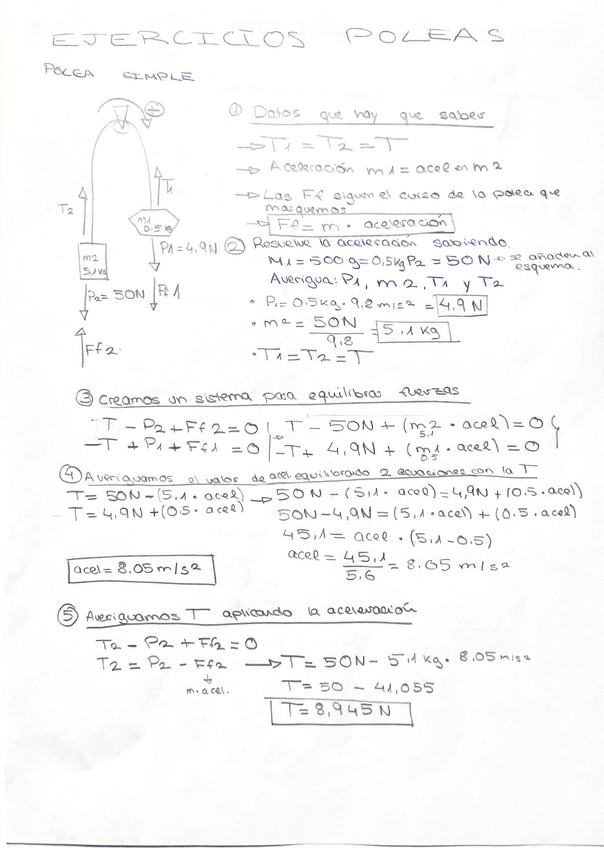 EJERCICIOS POLEAS
POLEA SIMPLE
+
T2
T1
m1
0.5 kg
m2
5,1 kg
P1 = 4,9 N
P2 = 50N
Ff1
Ff2
① Datos que hay que saber
→ T1 = T2 = T
→ Aceleración m1 = acel en m2
→ Las Ff siguen el curso de la polea que
marquemos
→ Ff = m · aceleración
② Resuelve la aceleración sabiendo.
M1 = 500 g = 0,5 kg P2 = 50 N → se añaden al
esquema.
Averigua: P1, m2, T1 y T2
• P1 = 0,5 kg · 9,8 m/s2 = 4,9 N
• m2 = 50N / 9,8 = 5,1 kg
• T1 = T2 = T
③ Creamos un sistema para equilibrar fuerzas
T - P2 + Ff2 = 0 T - 50N + (m2 · acel) = 0
5,1
-T + P1 + Ff1 = 0 -T + 4,9N + (m1 · acel) = 0
0.5
④ Averiguamos el valor de acel equilibrado 2 ecuaciones con la T
T = 50N - (5,1 · acel) → 50N - (5,1 · acel) = 4,9N + (0.5 · acel)
T = 4,9N + (0.5 · acel) 50N - 4,9N = (5,1 · acel) + (0.5 · acel)
45,1 = acel · (5,1 - 0.5)
acel = 45,1 / 5,6 = 8.05 m/s2
acel = 8,05 m/s2
⑤ Averiguamos T aplicando la aceleración
T2 - P2 + Ff2 = 0
T2 = P2 - Ff2 → T = 50N - 5,1 kg · 8,05 m/s2
m. acel.
T = 50 - 41,055
T = 8,945 N